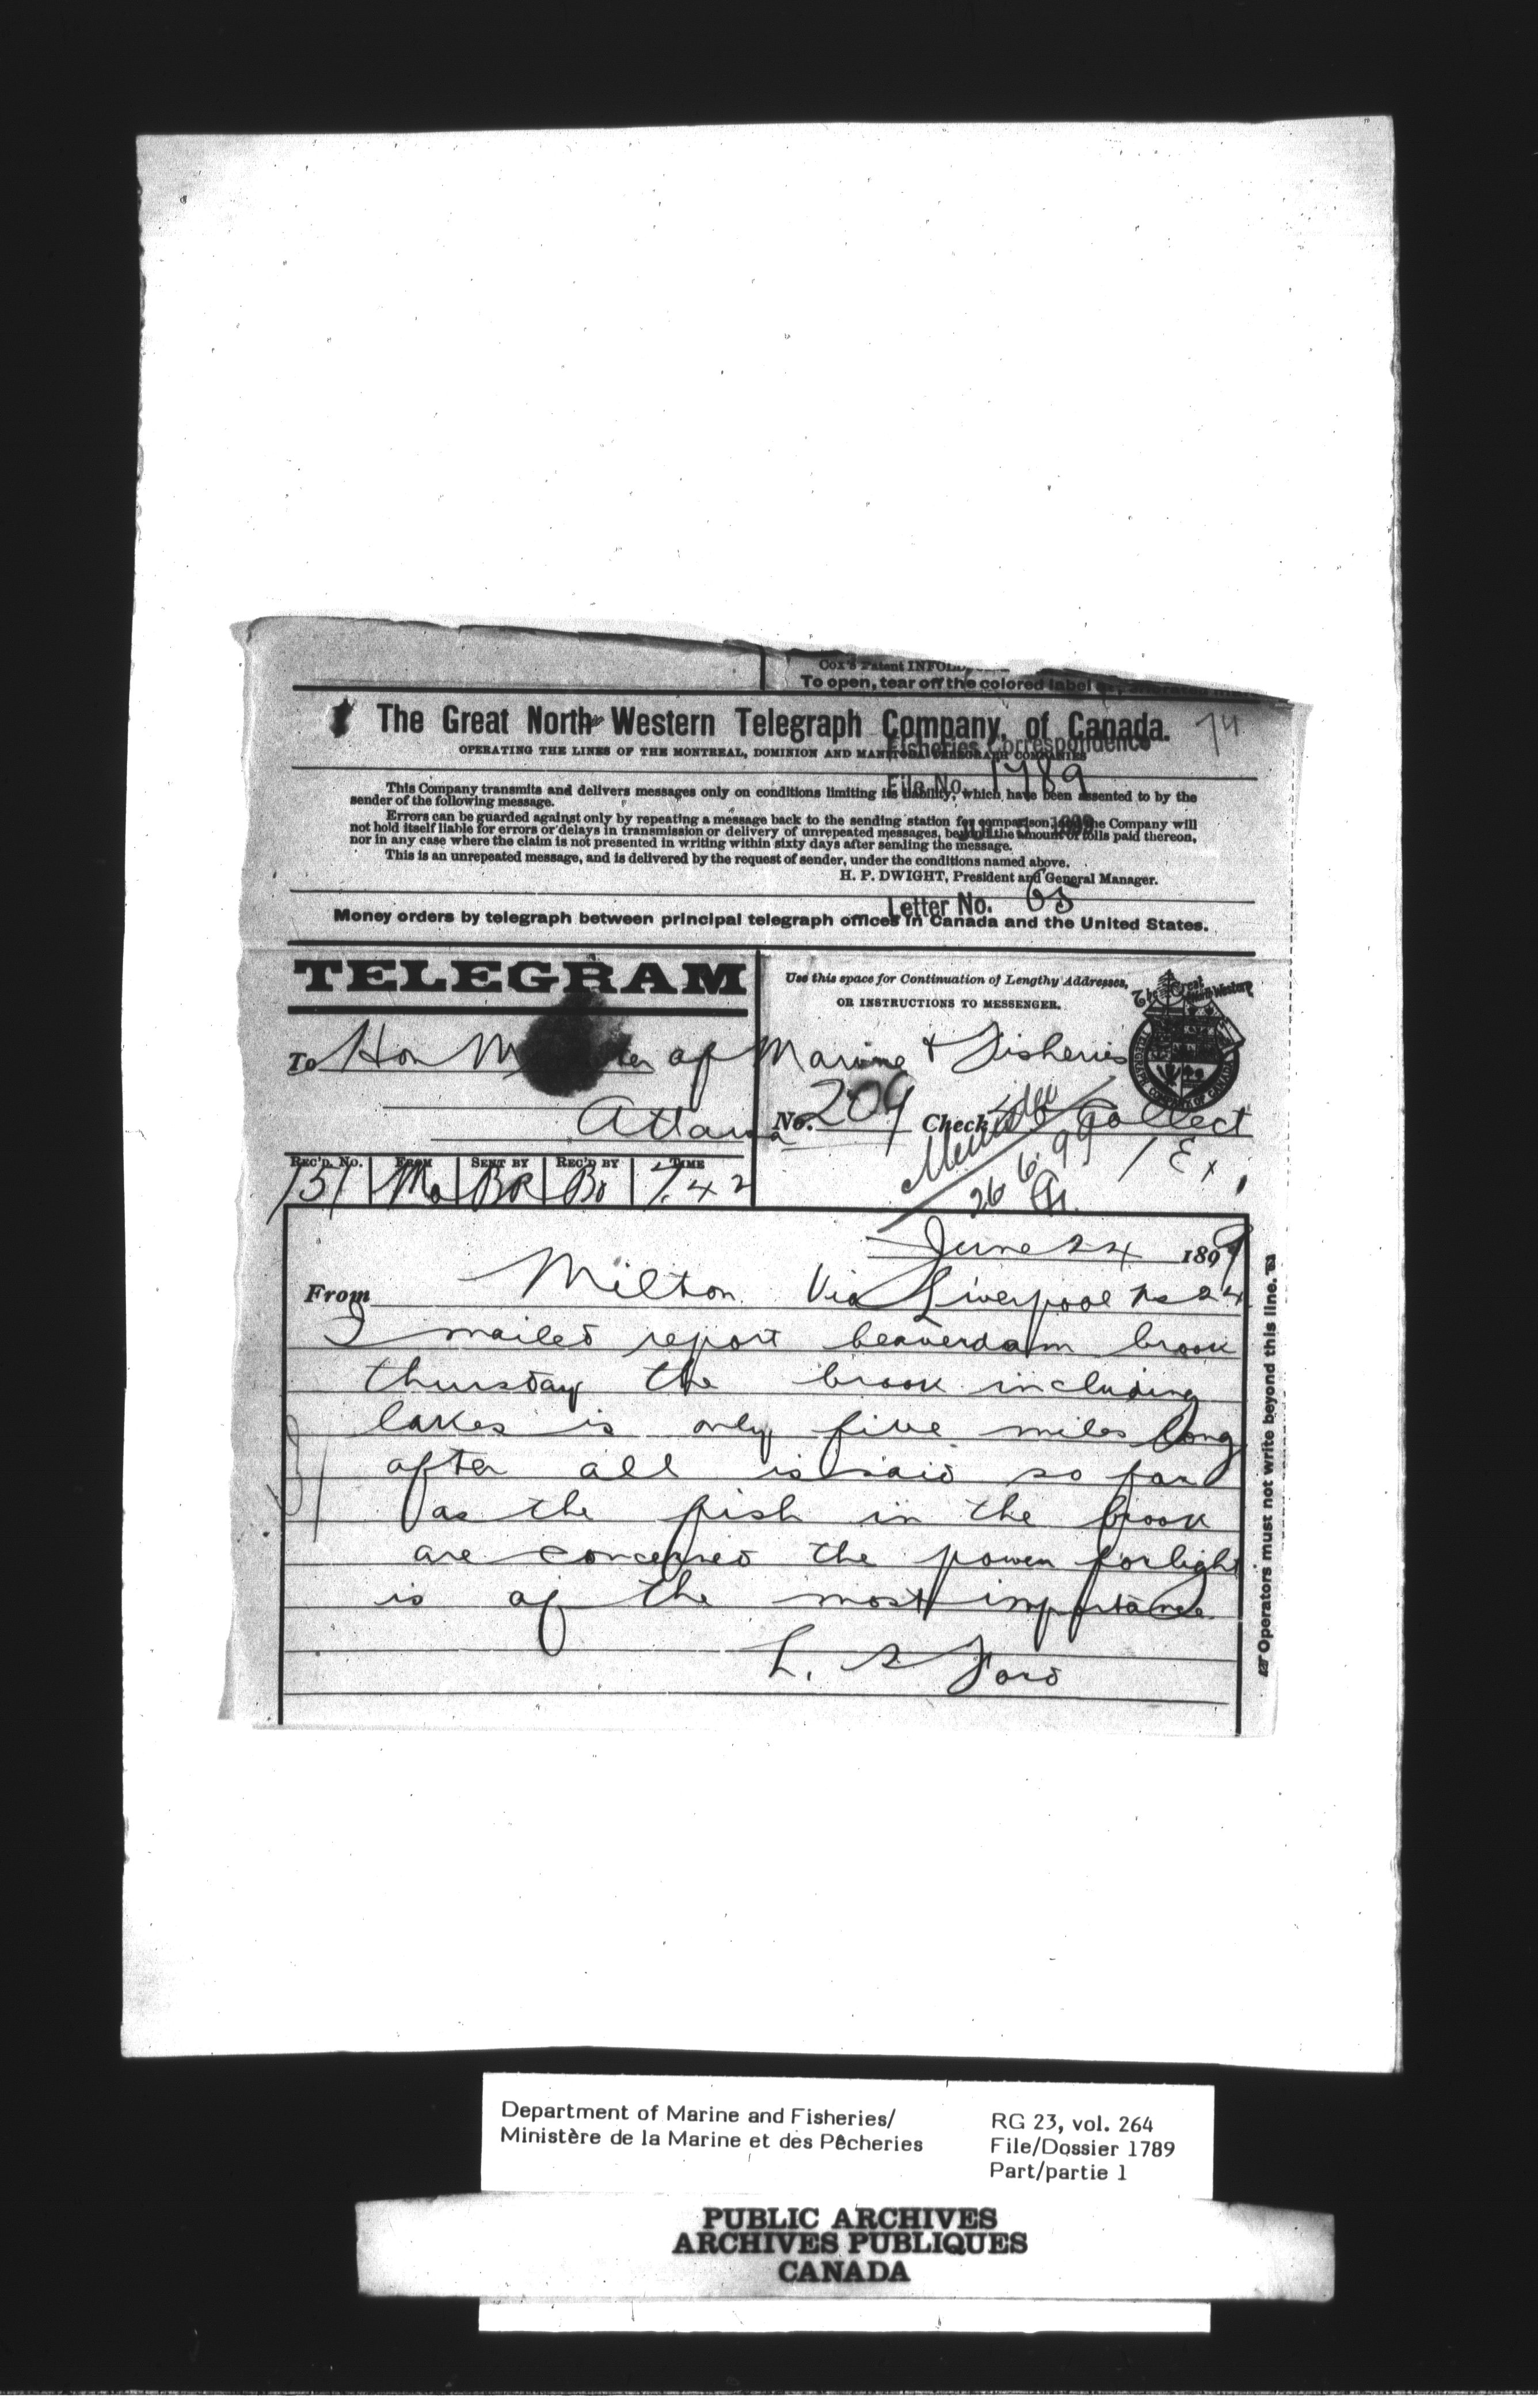 Cox's Patent
To open, tear off the colored label
The Great North Western Telegraph Company, of Canada.
74
OPERATING THE LINES OF THE MONTREAL, DOMINION AND MANITOBA TELEGRAPH COMPANIES
Fisheries Correspondence
File No. 1789
This Company transmits and delivers messages only on conditions limiting its liability, which have been assented to by the
sender of the following message.
Errors can be guarded against only by repeating a message back to the sending station for comparison, and the Company will
not hold itself liable for errors or delays in transmission or delivery of unrepeated messages, beyond the amount of tolls paid thereon,
nor in any case where the claim is not presented in writing within sixty days after sending the message.
This is an unrepeated message, and is delivered by the request of sender, under the conditions named above.
H. P. DWIGHT, President and General Manager.
Letter No. 65
Money orders by telegraph between principal telegraph offices in Canada and the United States.
TELEGRAM
Use this space for Continuation of Lengthy Addresses,
OR INSTRUCTIONS TO MESSENGER.
The Great North Western
TELEGRAPH COMPANY OF CANADA
To Hon Minister of Marine & Fisheries
Ottawa
No. 209 Check Collect
1 Ex
26 6. 99
REC'D. No. FROM SENT BY REC'D BY TIME
151 Mo BR Bo 7.42
June 24 1899
From Milton Via Liverpool ns 24
I mailed report beaverdam brook
thursday the brook including
lakes is only five miles long
after all is said so far
as the fish in the brook
are concerned the power for light
is of the most importance
L. S Ford
Operators must not write beyond this line.
Department of Marine and Fisheries/
Ministère de la Marine et des Pêcheries
RG 23, vol. 264
File/Dossier 1789
Part/partie 1
PUBLIC ARCHIVES
ARCHIVES PUBLIQUES
CANADA